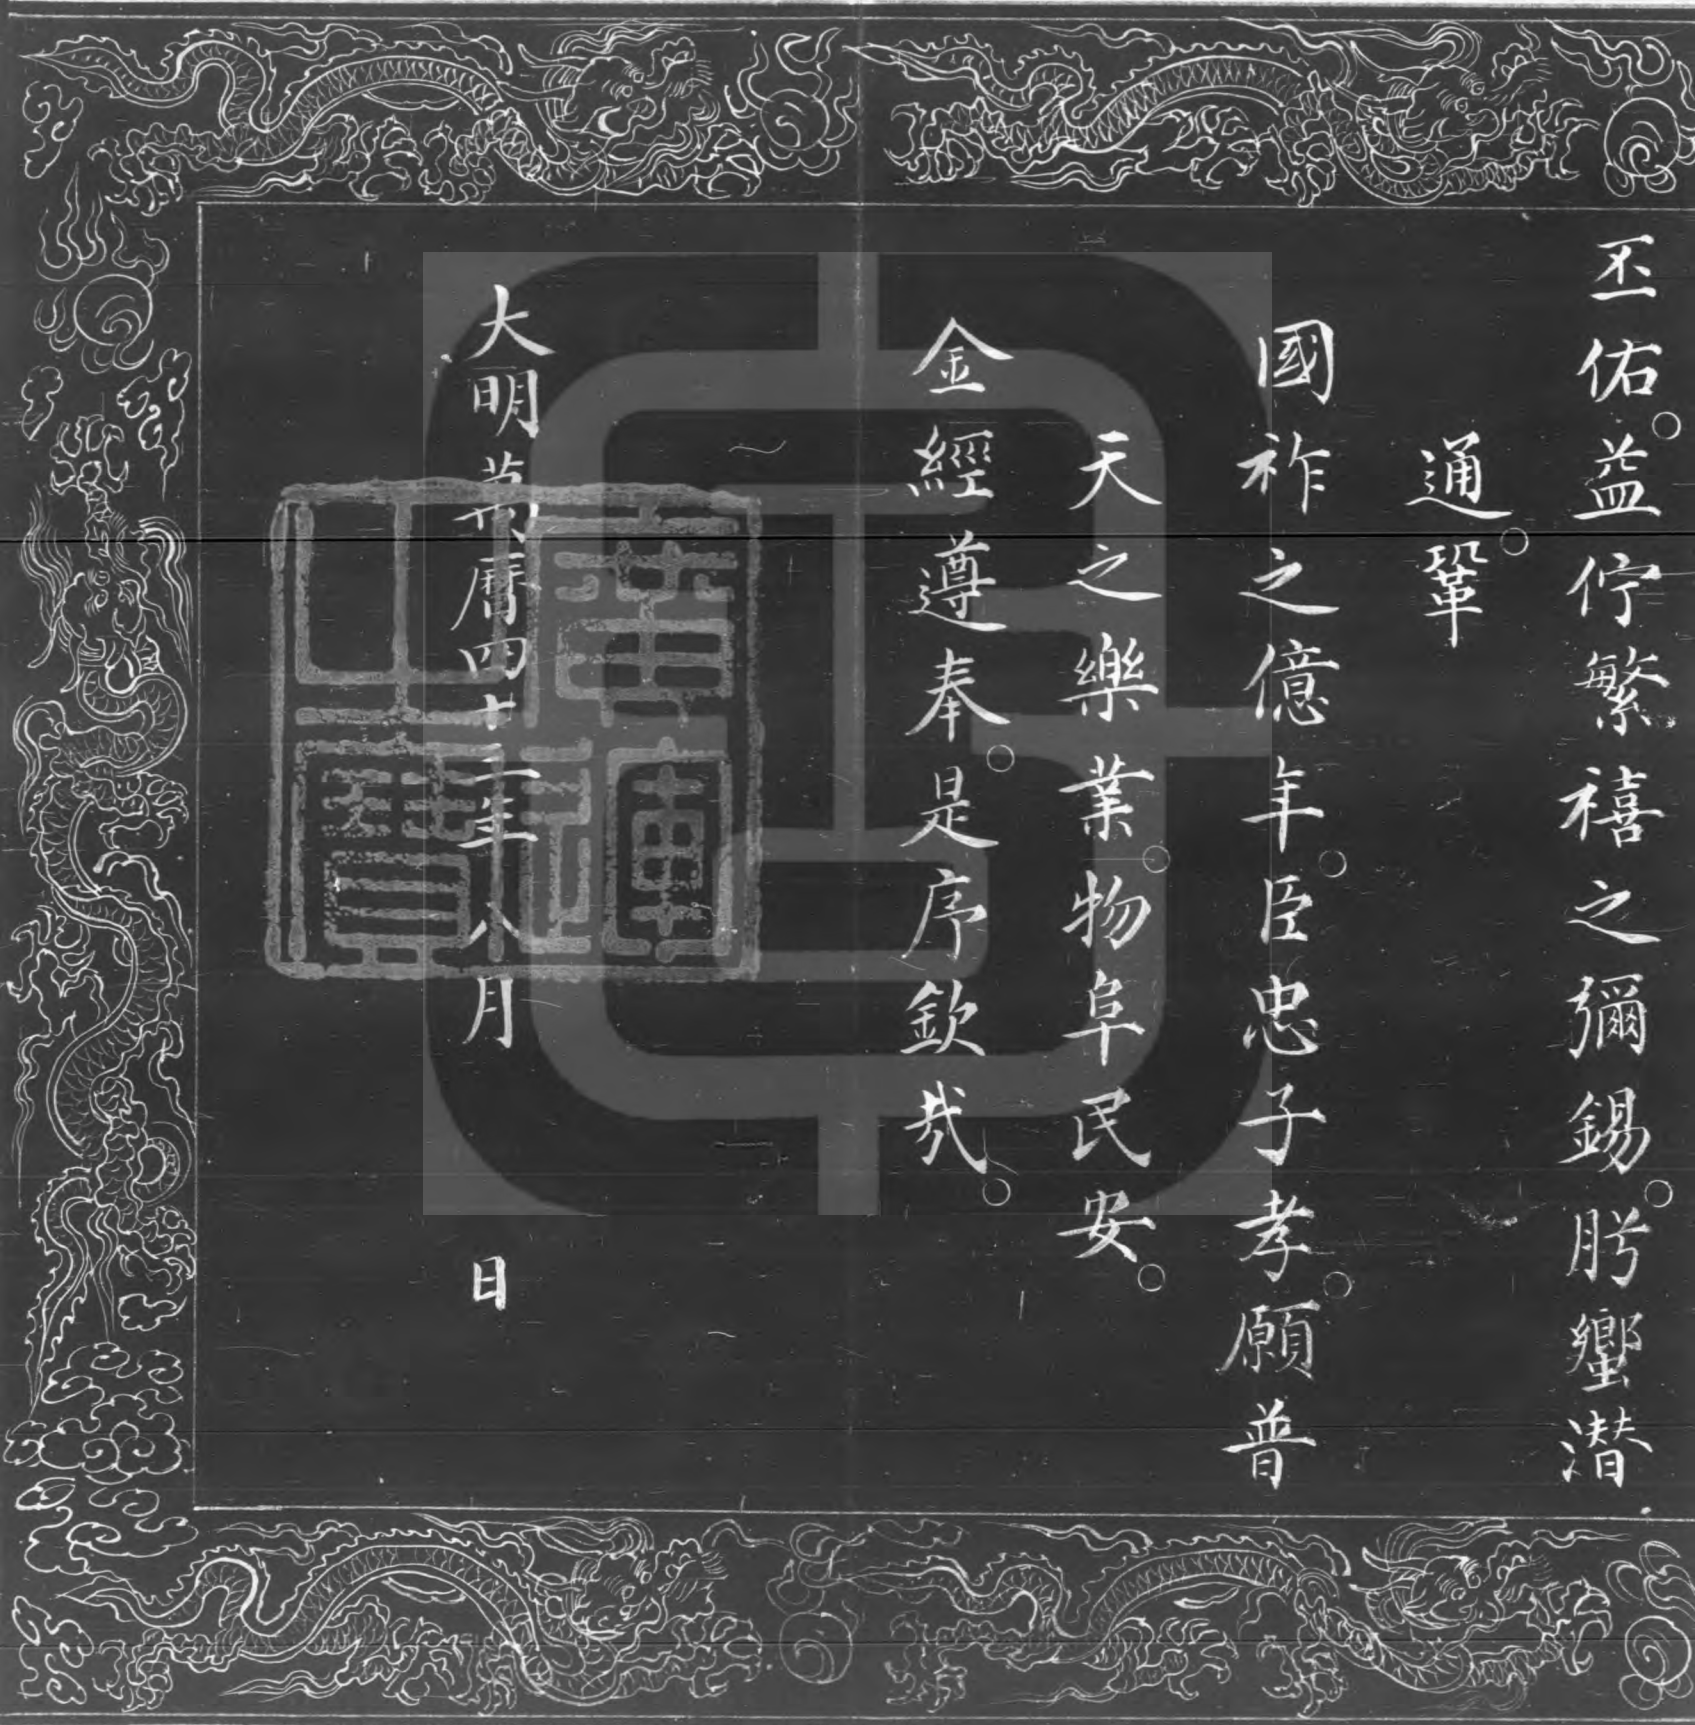 丕佑。益佇繁禧之彌錫。肹蠁潜
通。鞏
國祚之億年。臣忠子孝。願普
天之樂業。物阜民安。
金經遵奉。是序欽哉。
大明萬曆四十二年八月　日